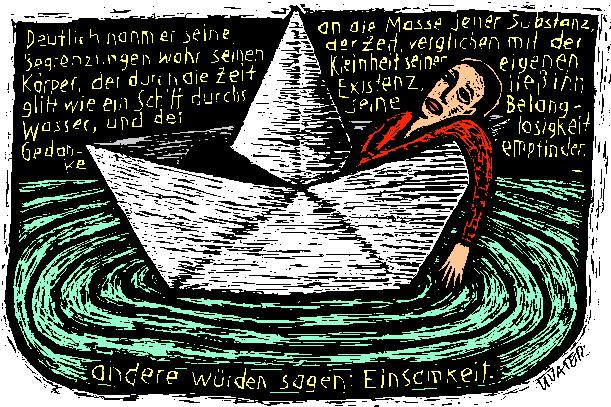 Deutlich nahm er seine
Begrenzungen wahr seinen
Körper, der durch die Zeit
glitt wie ein Schiff durchs
Wasser, und der
Gedan-
ke
an die Masse jener Substanz
der Zeit, verglichen mit der
Kleinheit seiner eigenen
Existenz ließ ihn
seine Belang-
losigkeit
empfinden.
andere würden sagen: Einsamkeit.